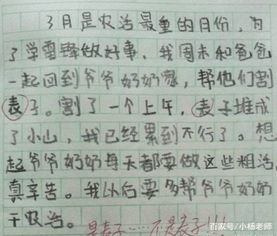 3月是农活最重的月份,为
了学雷锋做好事,我周末和爸爸
一起回到爷爷奶奶家,帮他们割
表子。割了一个上午,表子堆成
了小山,我已经累到不行了。想
起爷爷奶奶每天都要做这些粗活,
真辛苦。我以后要多帮爷爷奶奶
干农活。
是麦子……不是表子!!!
百家号/小杨老师